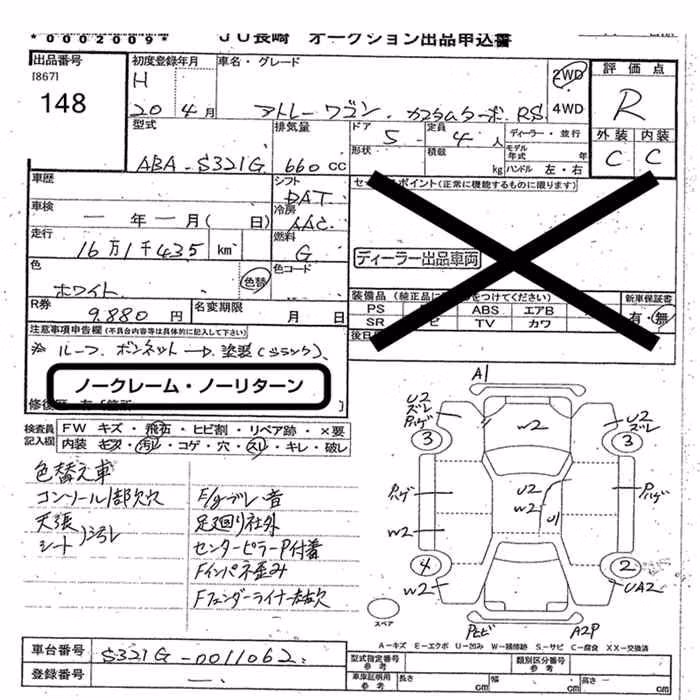 *0002009* JU長崎 オークション出品申込書
出品番号
[867]
148
初度登録年月
H
20年4月
車名・グレード
アトレーワゴン カスタムターボRS
2WD
4WD
評価点
R
外装 内装
C C
型式
ABA-S321G
排気量
660 CC
ドア
5
形状
定員
4人
積載
kg
ディーラー・並行
モデル年式 年
ハンドル 左・右
車歴
シフト
DAT
車検
一年一月( 日)
冷房
AAC
走行
16万1千435 km
燃料
G
色
ホワイト
色替
色コード
R券
9.880円
名変期限
月 日
セールスポイント(正常に機能するものに限ります)
ディーラー出品車両
装備品(純正品に をつけてください)
PS ABS エアB
SR TV カワ
新車保証書
有・無
後日
注意事項申告欄(不具合内容等は具体的に記入して下さい)
※ ルーフ、ボンネット→塗装(トランク)、
ノークレーム・ノーリターン
修復歴 有
検査員記入欄
FW キズ・飛石・ヒビ割・リペア跡・×要
内装 モゲ・汚レ・コゲ・穴・スレ・キレ・破レ
色替え車
コンソール1部欠穴
天張
シート 汚レ
F/gブレ音
足回り社外
センターピラーP付着
Fインパネ歪み
Fフェンダーライナー1部欠
A1
U2
ズレ
Pハゲ
3
W2
U2
ズレ
Pハゲ
3
Pハゲ
U2
W2
U1
Pハゲ
W2
4
W2
2
UA2
スペア
PヒビA2P
A-キズ E-エクボ U-凹み W-補修跡 S-サビ C-腐食 XX-交換済
車台番号
S321G-0011062
登録番号
一
型式指定番号
参考
類別区分番号
参考
車庫証明用
参考
長さ cm 幅 cm 高さ cm